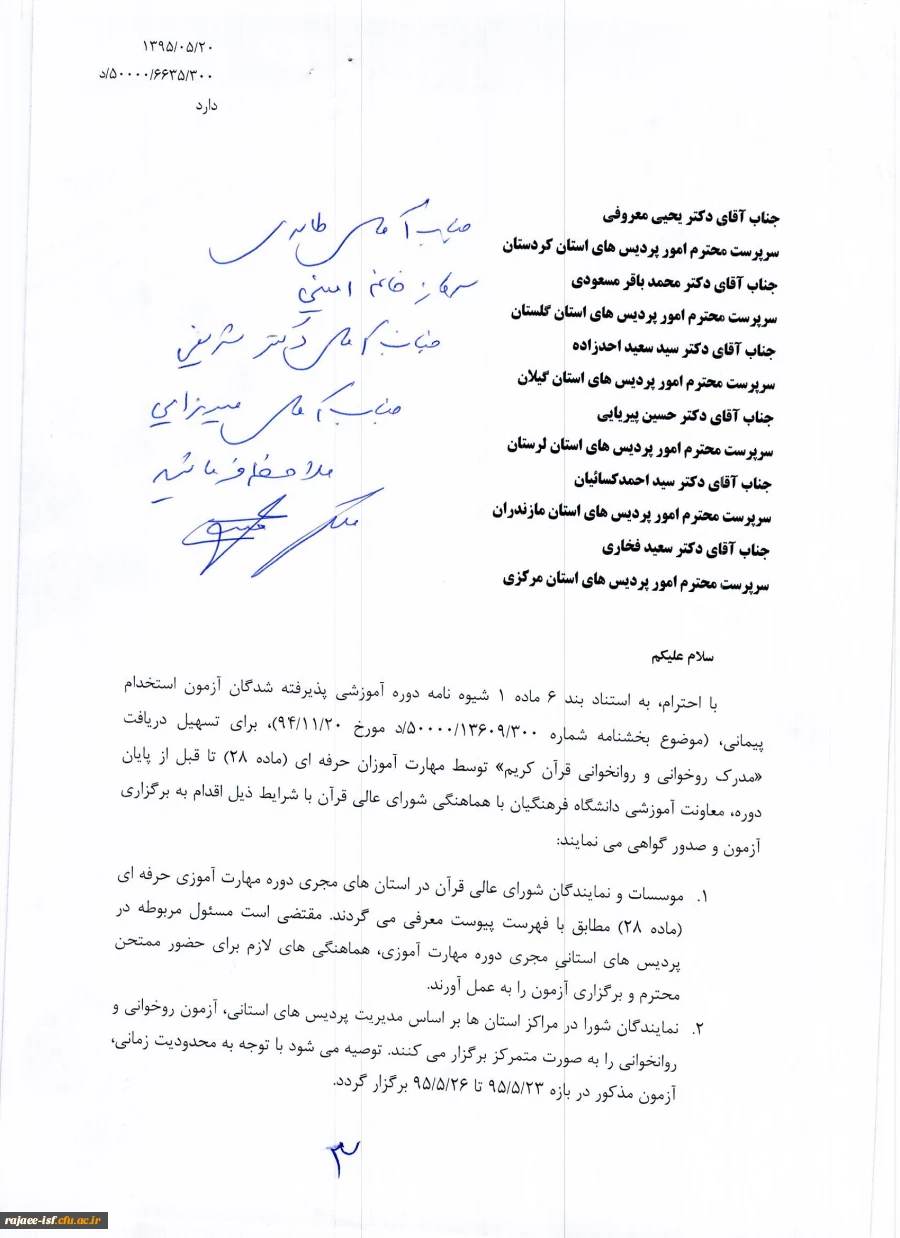 ۱۳۹۵/۰۵/۲۰
۵۰۰۰۰/۶۶۳۵/۳۰۰/د
دارد
جناب آقای دکتر یحیی معروفی
سرپرست محترم امور پردیس های استان کردستان
جناب آقای دکتر محمد باقر مسعودی
سرپرست محترم امور پردیس های استان گلستان
جناب آقای دکتر سید سعید احدزاده
سرپرست محترم امور پردیس های استان گیلان
جناب آقای دکتر حسین پیریایی
سرپرست محترم امور پردیس های استان لرستان
جناب آقای دکتر سید احمدکسائیان
سرپرست محترم امور پردیس های استان مازندران
جناب آقای دکتر سعید فخاری
سرپرست محترم امور پردیس های استان مرکزی
جناب آقای
سرکار خانم امینی
جناب آقای دکتر شریفی
جناب آقای میرزایی
ملاحظه فرمائید
سلام علیکم
با احترام، به استناد بند ۶ ماده ۱ شیوه نامه دوره آموزشی پذیرفته شدگان آزمون استخدام
پیمانی، (موضوع بخشنامه شماره ۵۰۰۰۰/۱۳۶۰۹/۳۰۰/د مورخ ۹۴/۱۱/۲۰)، برای تسهیل دریافت
«مدرک روخوانی و روانخوانی قرآن کریم» توسط مهارت آموزان حرفه ای (ماده ۲۸) تا قبل از پایان
دوره، معاونت آموزشی دانشگاه فرهنگیان با هماهنگی شورای عالی قرآن با شرایط ذیل اقدام به برگزاری
آزمون و صدور گواهی می نمایند:
۱. موسسات و نمایندگان شورای عالی قرآن در استان های مجری دوره مهارت آموزی حرفه ای
(ماده ۲۸) مطابق با فهرست پیوست معرفی می گردند. مقتضی است مسئول مربوطه در
پردیس های استانیِ مجری دوره مهارت آموزی، هماهنگی های لازم برای حضور ممتحن
محترم و برگزاری آزمون را به عمل آورند.
۲. نمایندگان شورا در مراکز استان ها بر اساس مدیریت پردیس های استانی، آزمون روخوانی و
روانخوانی را به صورت متمرکز برگزار می کنند. توصیه می شود با توجه به محدودیت زمانی،
آزمون مذکور در بازه ۹۵/۵/۲۳ تا ۹۵/۵/۲۶ برگزار گردد.
۳
rajaee-isf.cfu.ac.ir